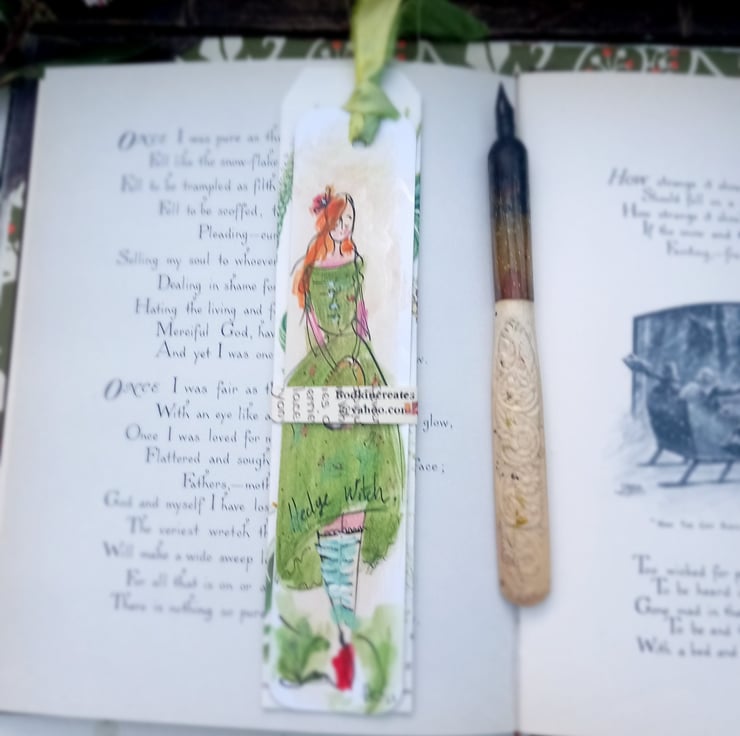 ONCE I was pure as the
Fell like the snow-flake
Fell to be trampled as filth
Fell to be scoffed, t
Pleading—cur
Selling my soul to whoever
Dealing in shame for
Hating the living and f
Merciful God, hav
And yet I was onc
w.
ONCE I was fair as th
With an eye like a
glow,
Once I was loved for m
Flattered and sough
ace;
Fathers,—moth
God and myself I have los
The veriest wretch th
Will make a wide sweep l
For all that is on or a
There is nothing so pure
Bodkincreates
@yahoo.com
Hedge Witch
How strange it shou
Should fall on a
How strange it shou
If the snow and
Fainting,—fre
Too wicked for p
To be heard i
Gone mad in thei
To be and
With a bed and